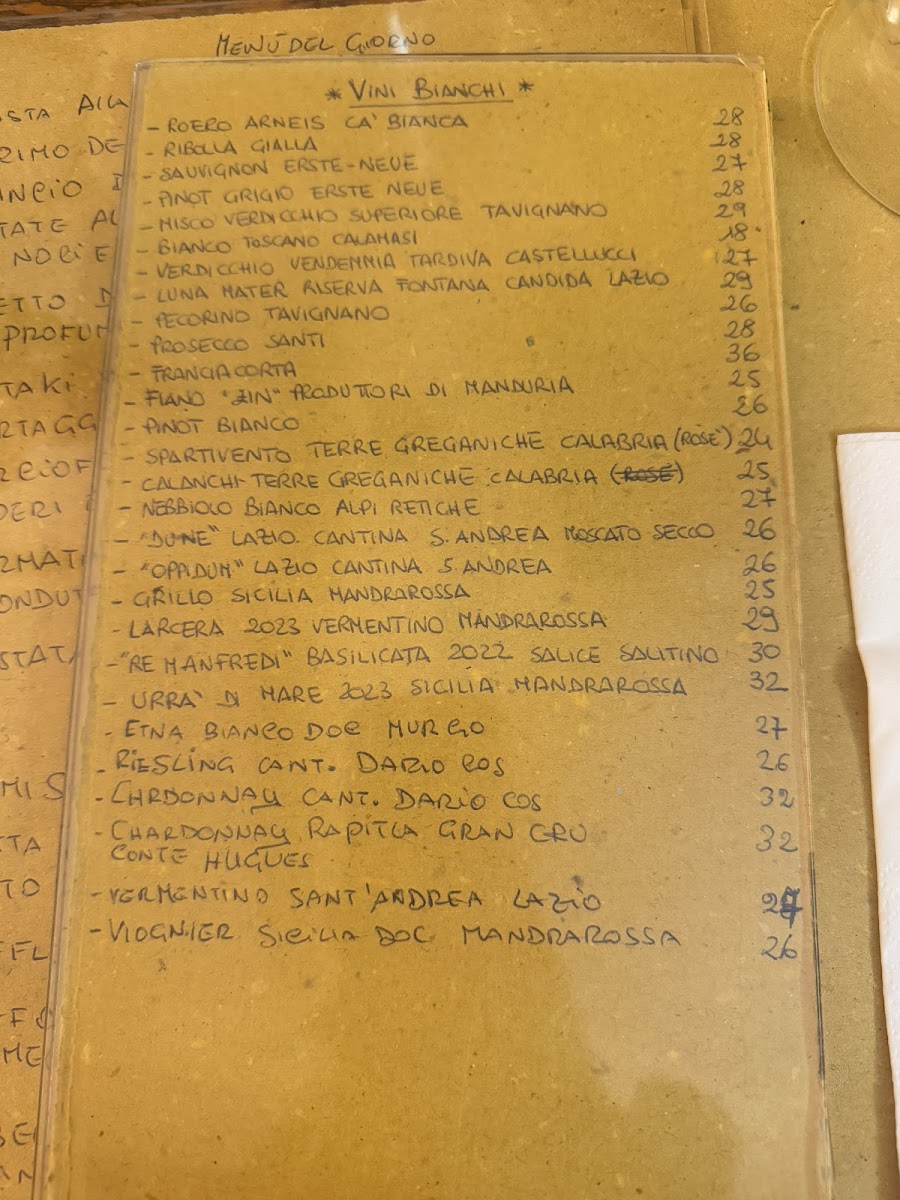 MENÙ DEL GIORNO
* VINI BIANCHI *
- ROERO ARNEIS CA' BIANCA 28
- RIBOLLA GIALLA 28
- SAUVIGNON ERSTE-NEUE 27
- PINOT GRIGIO ERSTE NEUE 28
- MISCO VERDICCHIO SUPERIORE TAVIGNANO 29
- BIANCO TOSCANO CALAMASI 18
- VERDICCHIO VENDEMMIA TARDIVA CASTELLUCCI 27
- LUNA MATER RISERVA FONTANA CANDIDA LAZIO 29
- PECORINO TAVIGNANO 26
- PROSECCO SANTI 28
- FRANCIACORTA 36
- FIANO "ZIN" PRODUTTORI DI MANDURIA 25
- PINOT BIANCO 26
- SPARTIVENTO TERRE GREGANICHE CALABRIA (ROSÉ) 24
- CALANCHI-TERRE GREGANICHE CALABRIA (ROSÉ) 25
- NEBBIOLO BIANCO ALPI RETICHE 27
- "DUNE" LAZIO CANTINA S. ANDREA MOSCATO SECCO 26
- "OPPIDUM" LAZIO CANTINA S. ANDREA 26
- GRILLO SICILIA MANDRAROSSA 25
- LARCERA 2023 VERMENTINO MANDRAROSSA 29
- "RE MANFREDI" BASILICATA 2022 SALICE SALITINO 30
- URRA' DI MARE 2023 SICILIA MANDRAROSSA 32
- ETNA BIANCO DOC MURGO 27
- RIESLING CANT. DARIO COS 26
- CHRDONNAY CANT. DARIO COS 32
- CHARDONNAY RAPITLA GRAN CRU 32
CONTE HUGUES
- VERMENTINO SANT'ANDREA LAZIO 27
- VIOGNIER SICILIA DOC MANDRAROSSA 26